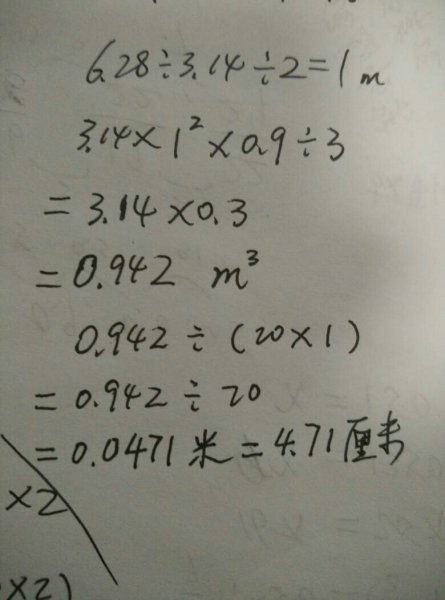 6.28÷3.14÷2=1m
3.14×1²×0.9÷3
=3.14×0.3
=0.942 m³
0.942÷(20×1)
=0.942÷20
=0.0471米=4.71厘米
×2
×2)